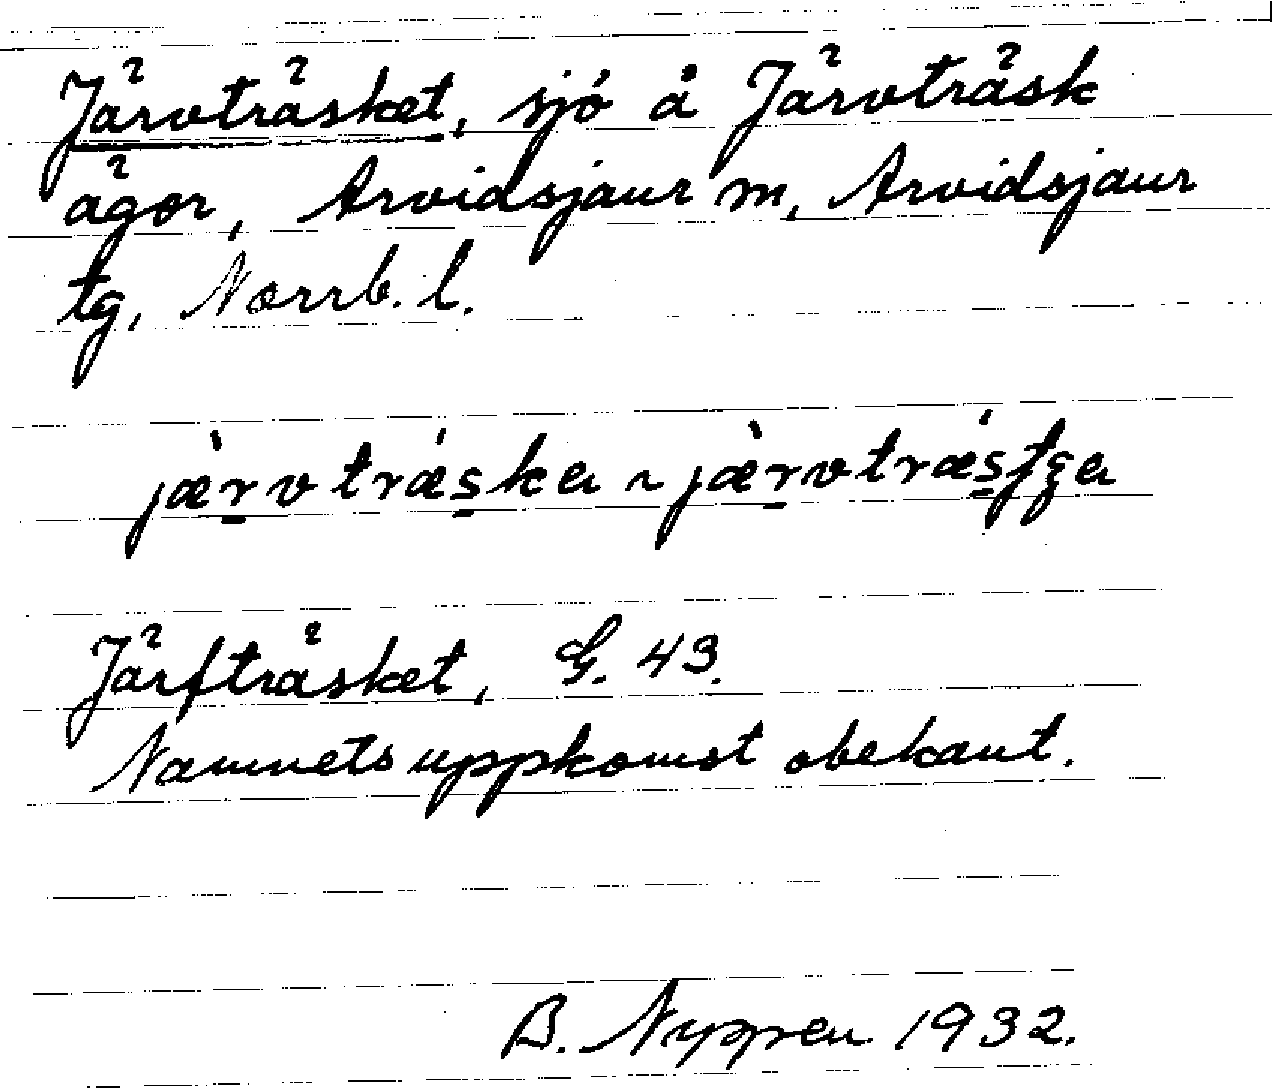 Järvträsket, sjö å Järvträsk
ägor, Arvidsjaur m, Arvidsjaur
tg, Norrb. l.
jæ̀rvtrǽska ~ jæ̀rvtrǽstʃa
Järfträsket, G. 43.
Namnets uppkomst obekant.
B. Nyppen 1932.